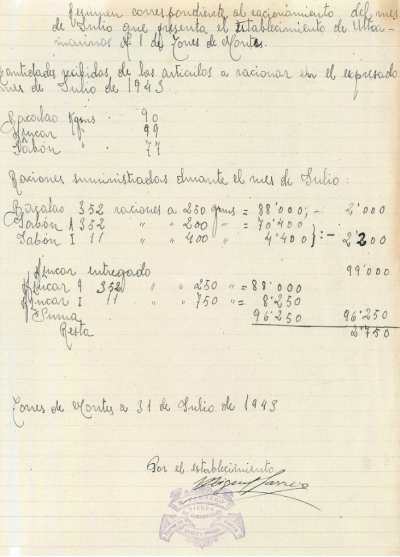 Resumen correspondiente al racionamiento del mes
de Julio que presenta el establecimiento de Ultra-
marinos Nº 1 de Torres de Montes.
Cantidades recibidas de los articulos a racionar en el expresado
mes de Julio de 1943
Bacalao Kgms 90
Azucar " 99
Jabón " 77
Raciones suministradas durante el mes de Julio:
Bacalao 352 raciones a 250 gms = 88'000; - 2'000
Jabón A 352 " " 200 " = 70'400
Jabón I 11 " " 400 " 4'400 } : - 2'200
Azucar entregado 99'000
Azucar A 352 " " 250 " = 88'000
Azucar I 11 " " 750 " = 8'250
Suma 96'250 96'250
Resta 2'750
Torres de Montes a 31 de Julio de 1943
Por el establecimiento